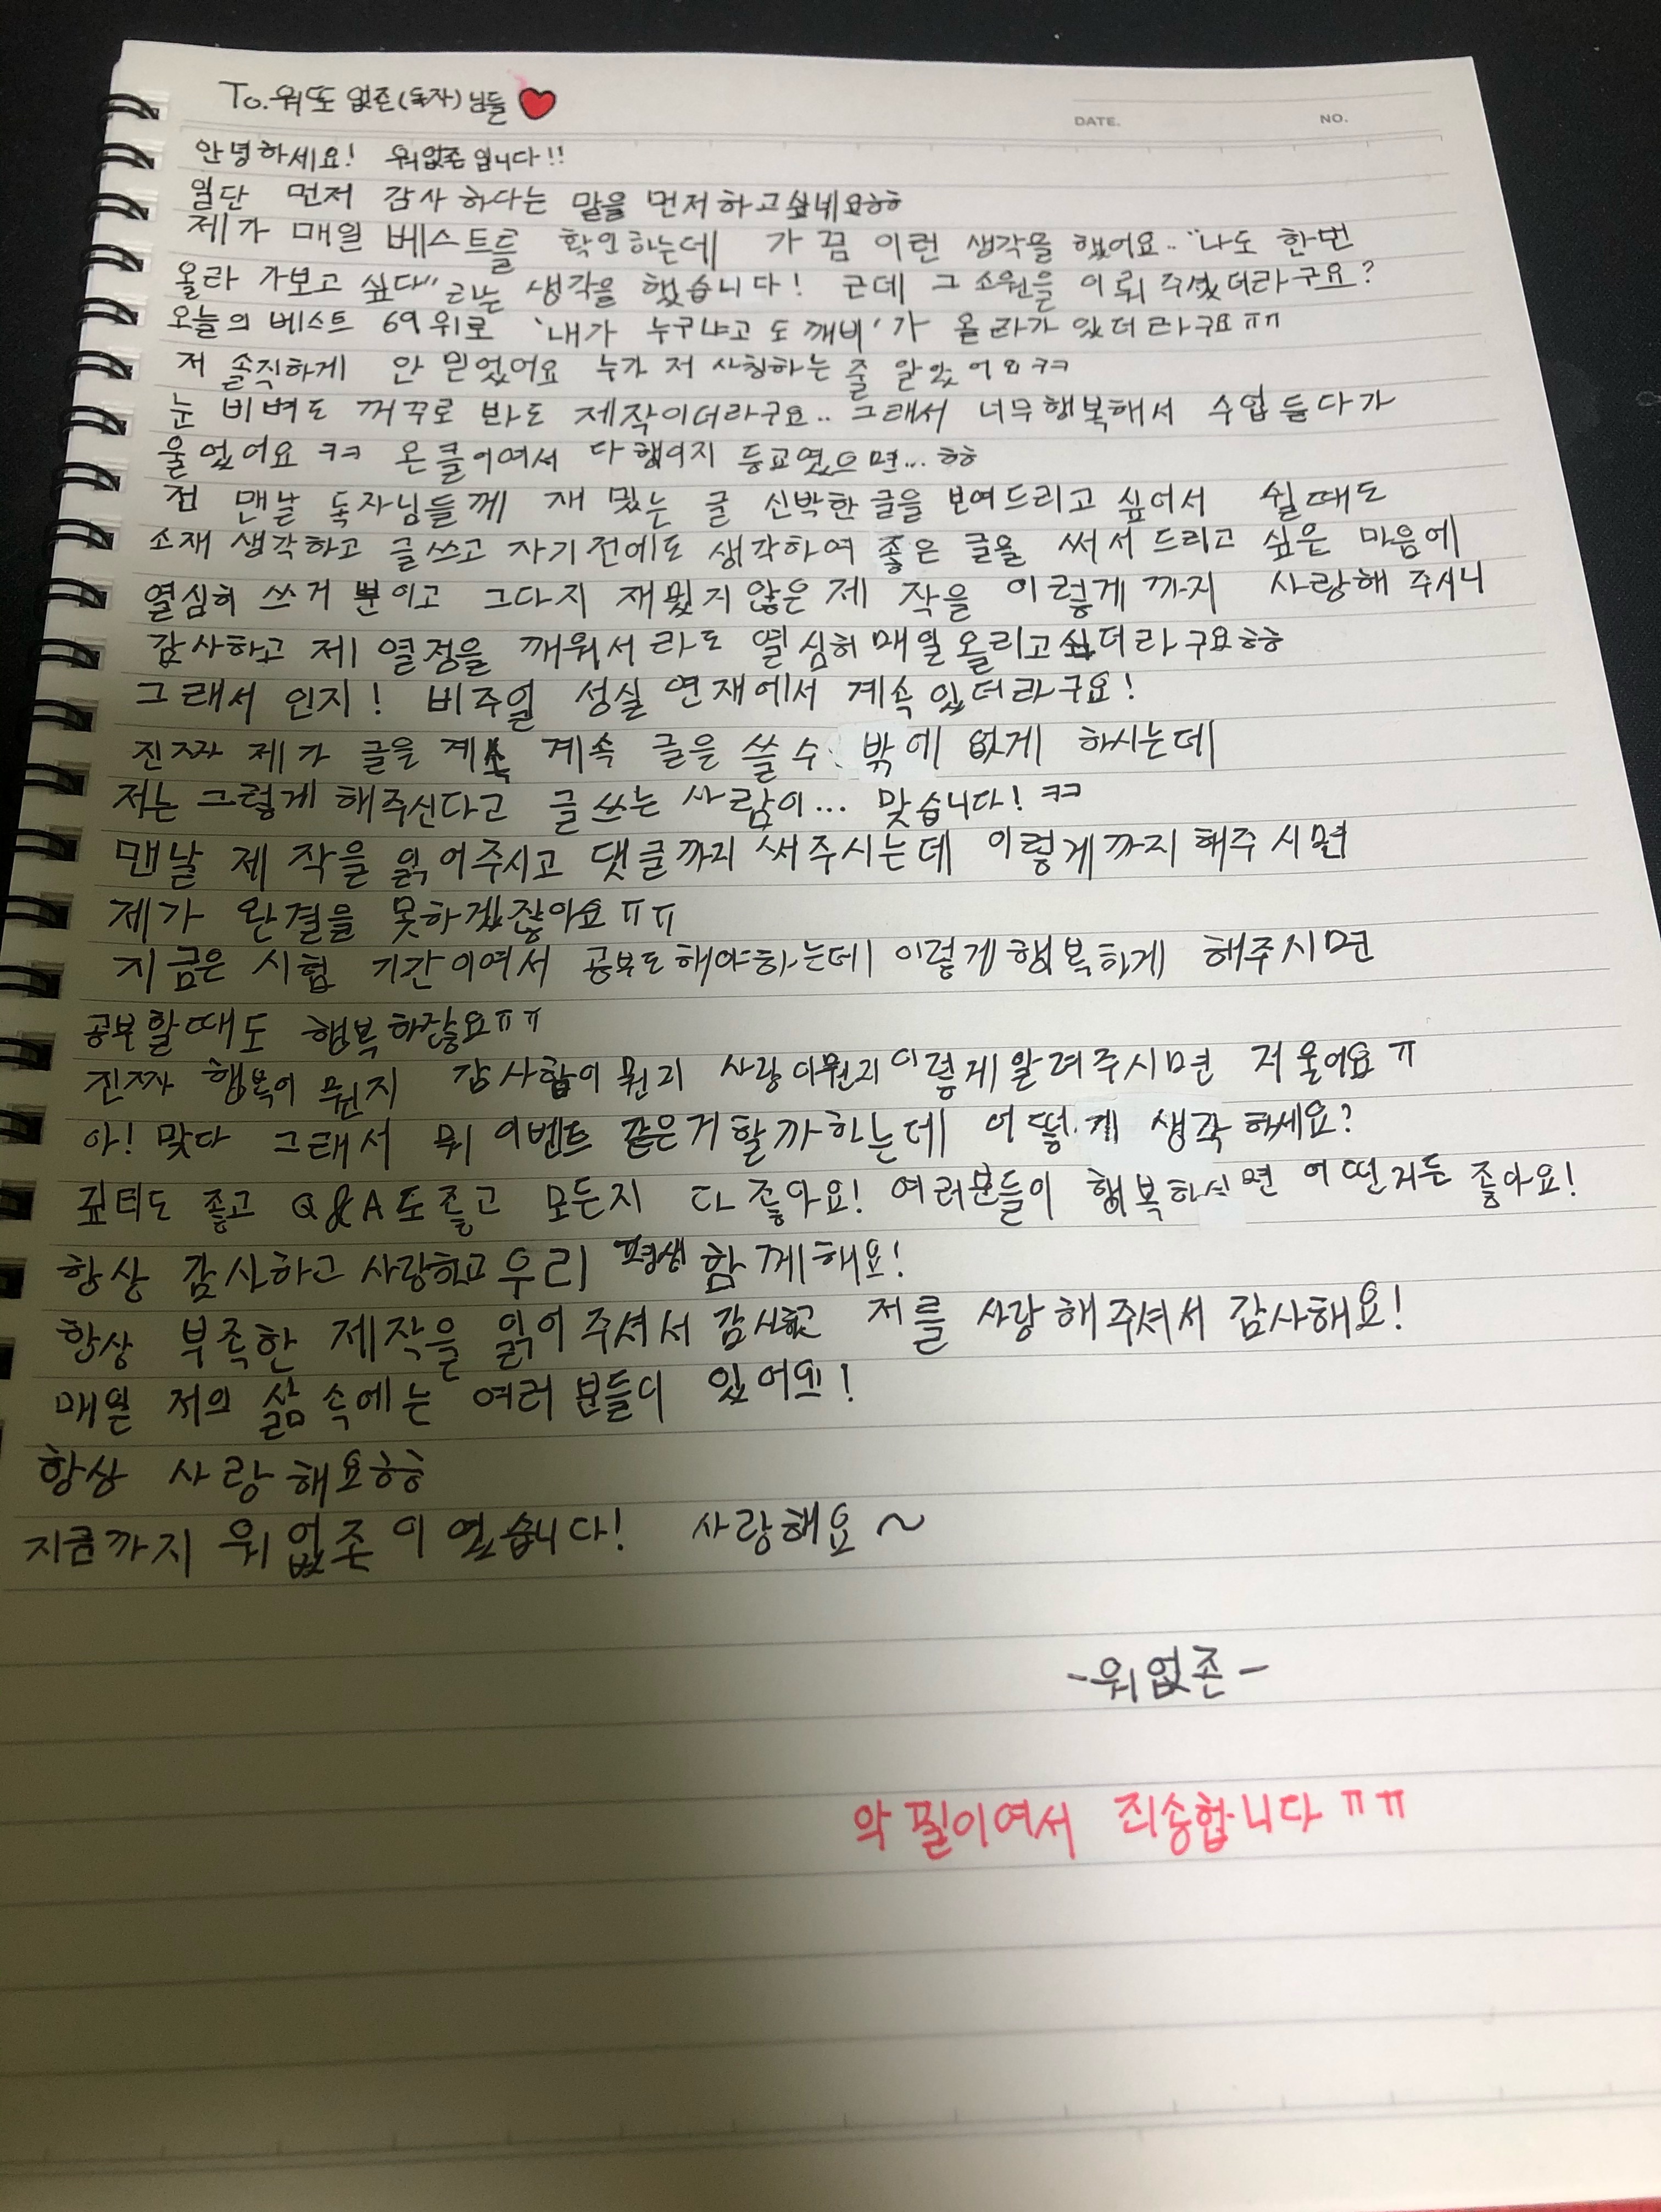 To. 위또 없존(독자)님들
DATE. NO.
안녕하세요! 위없존 입니다!!
일단 먼저 감사 하다는 말을 먼저하고싶네요ㅎㅎ
제가 매일 베스트를 확인하는데 가끔 이런 생각을 했어요.. "나도 한번
올라 가보고 싶다" 라는 생각을 했습니다! 근데 그 소원을 이뤄 주셨더라구요?
오늘의 베스트 69위로 '내가 누구냐고 도깨비'가 올라가 있더라구요ㅠㅠ
저 솔직하게 안 믿었어요 누가 저 사칭하는 줄 알았어요ㅋㅋ
눈 비벼도 꺼꾸로 봐도 제작이더라구요.. 그래서 너무행복해서 수업 듣다가
울었어요 ㅋㅋ 온클이여서 다행이지 등교였으면... ㅎㅎ
전 맨날 독자님들께 재밌는 글 신박한 글을 보여드리고 싶어서 쉴때도
소재 생각하고 글쓰고 자기전에도 생각하여 좋은 글을 써서 드리고 싶은 마음에
열심히 쓰거 뿐이고 그다지 재밌지않은 제 작을 이렇게 까지 사랑해 주시니
감사하고 제 열정을 깨워서라도 열심히 매일 올리고싶더라구요ㅎㅎ
그래서 인지! 비주얼 성실 연재에서 계속 있더라구요!
진짜 제가 글을 계속 계속 글을 쓸수 밖에 없게 하시는데
저는 그렇게 해주신다고 글쓰는 사람이... 맞습니다! ㅋㅋ
맨날 제 작을 읽어주시고 댓글까지 써주시는데 이렇게까지 해주시면
제가 완결을 못하겠잖아요ㅠㅠ
지금은 시험 기간이여서 공부도해야하는데 이렇게행복하게 해주시면
공부할때도 행복하잖요ㅠㅠ
진짜 행복이 뭔지 감사함이 뭔지 사랑이뭔지 이렇게알려주시면 저 울어요ㅠ
아! 맞다 그래서 뭐 이벤트 같은거할까하는데 어떻게 생각하세요?
꾜터도 좋고 Q&A도좋고 모든지 다 좋아요! 여러분들이 행복하시면 어떤거든 좋아요!
항상 감사하고 사랑하고 우리 평생 함께해요!
항상 부족한 제작을 읽어주셔서 감사하고 저를 사랑해주셔서 감사해요!
매일 저의 삶속에는 여러분들이 있어요!
항상 사랑해요ㅎㅎ
지금까지 위없존이였습니다! 사랑해요~
-위없존-
악필이여서 죄송합니다ㅠㅠ